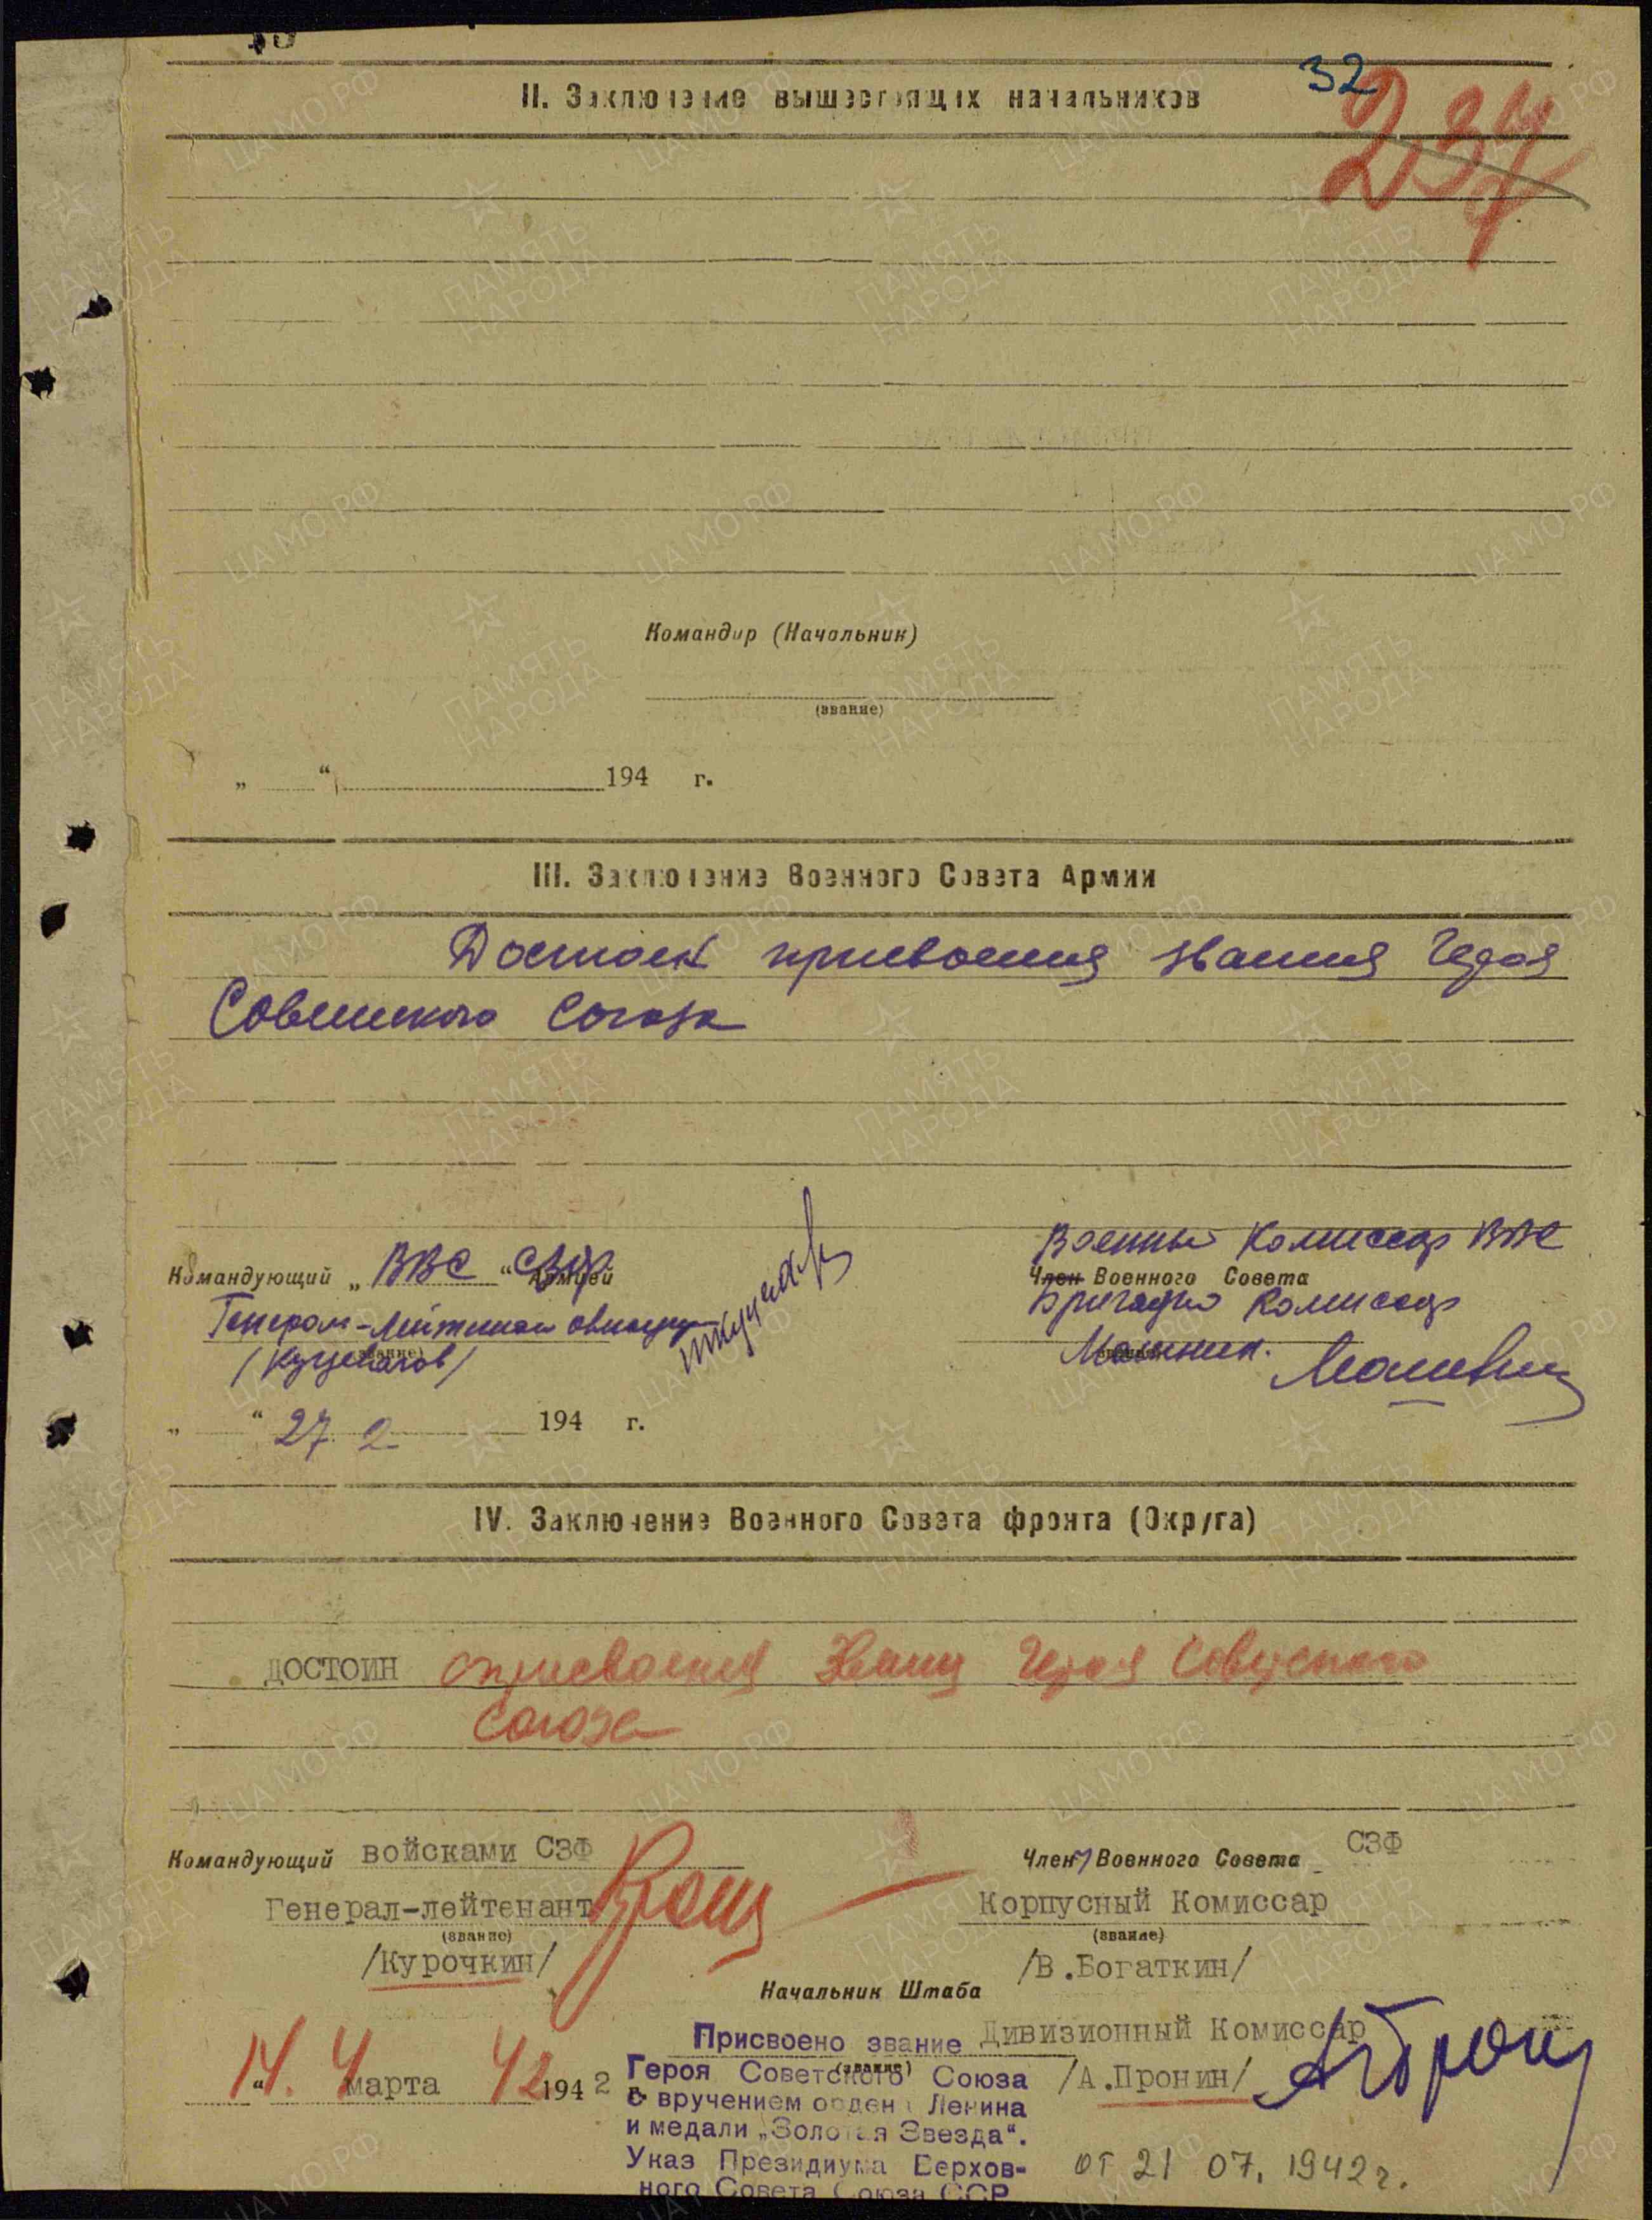 32
237
II. Заключение вышестоящих начальников
Командир (Начальник)
(звание)
„ “ 194 г.
III. Заключение Военного Совета Армии
Достоин присвоения звания Героя
Советского Союза
Военный Комиссар ВВС
Командующий „ ВВС “ СЗФ Армией
Член Военного Совета
Генерал-лейтенант авиации
Бригадный Комиссар
(звание)
/Куцевалов/
„ “ 27 2 194 г.
IV. Заключение Военного Совета фронта (Округа)
достоин присвоения звания Героя Советского
Союза
Командующий войсками СЗФ
Член Военного Совета СЗФ
Генерал-лейтенант
Корпусный Комиссар
(звание)
(звание)
/Курочкин/
/В.Богаткин/
Начальник Штаба
Присвоено звание
Дивизионный Комиссар
(звание)
Героя Советского Союза
/А.Пронин/
14. 4 марта 42 1942 г.
с вручением ордена Ленина
и медали „Золотая Звезда“.
Указ Президиума Верхов-
от 21 07. 1942 г.
ного Совета Союза ССР
ЦАМО.РФ
ПАМЯТЬ
НАРОДА